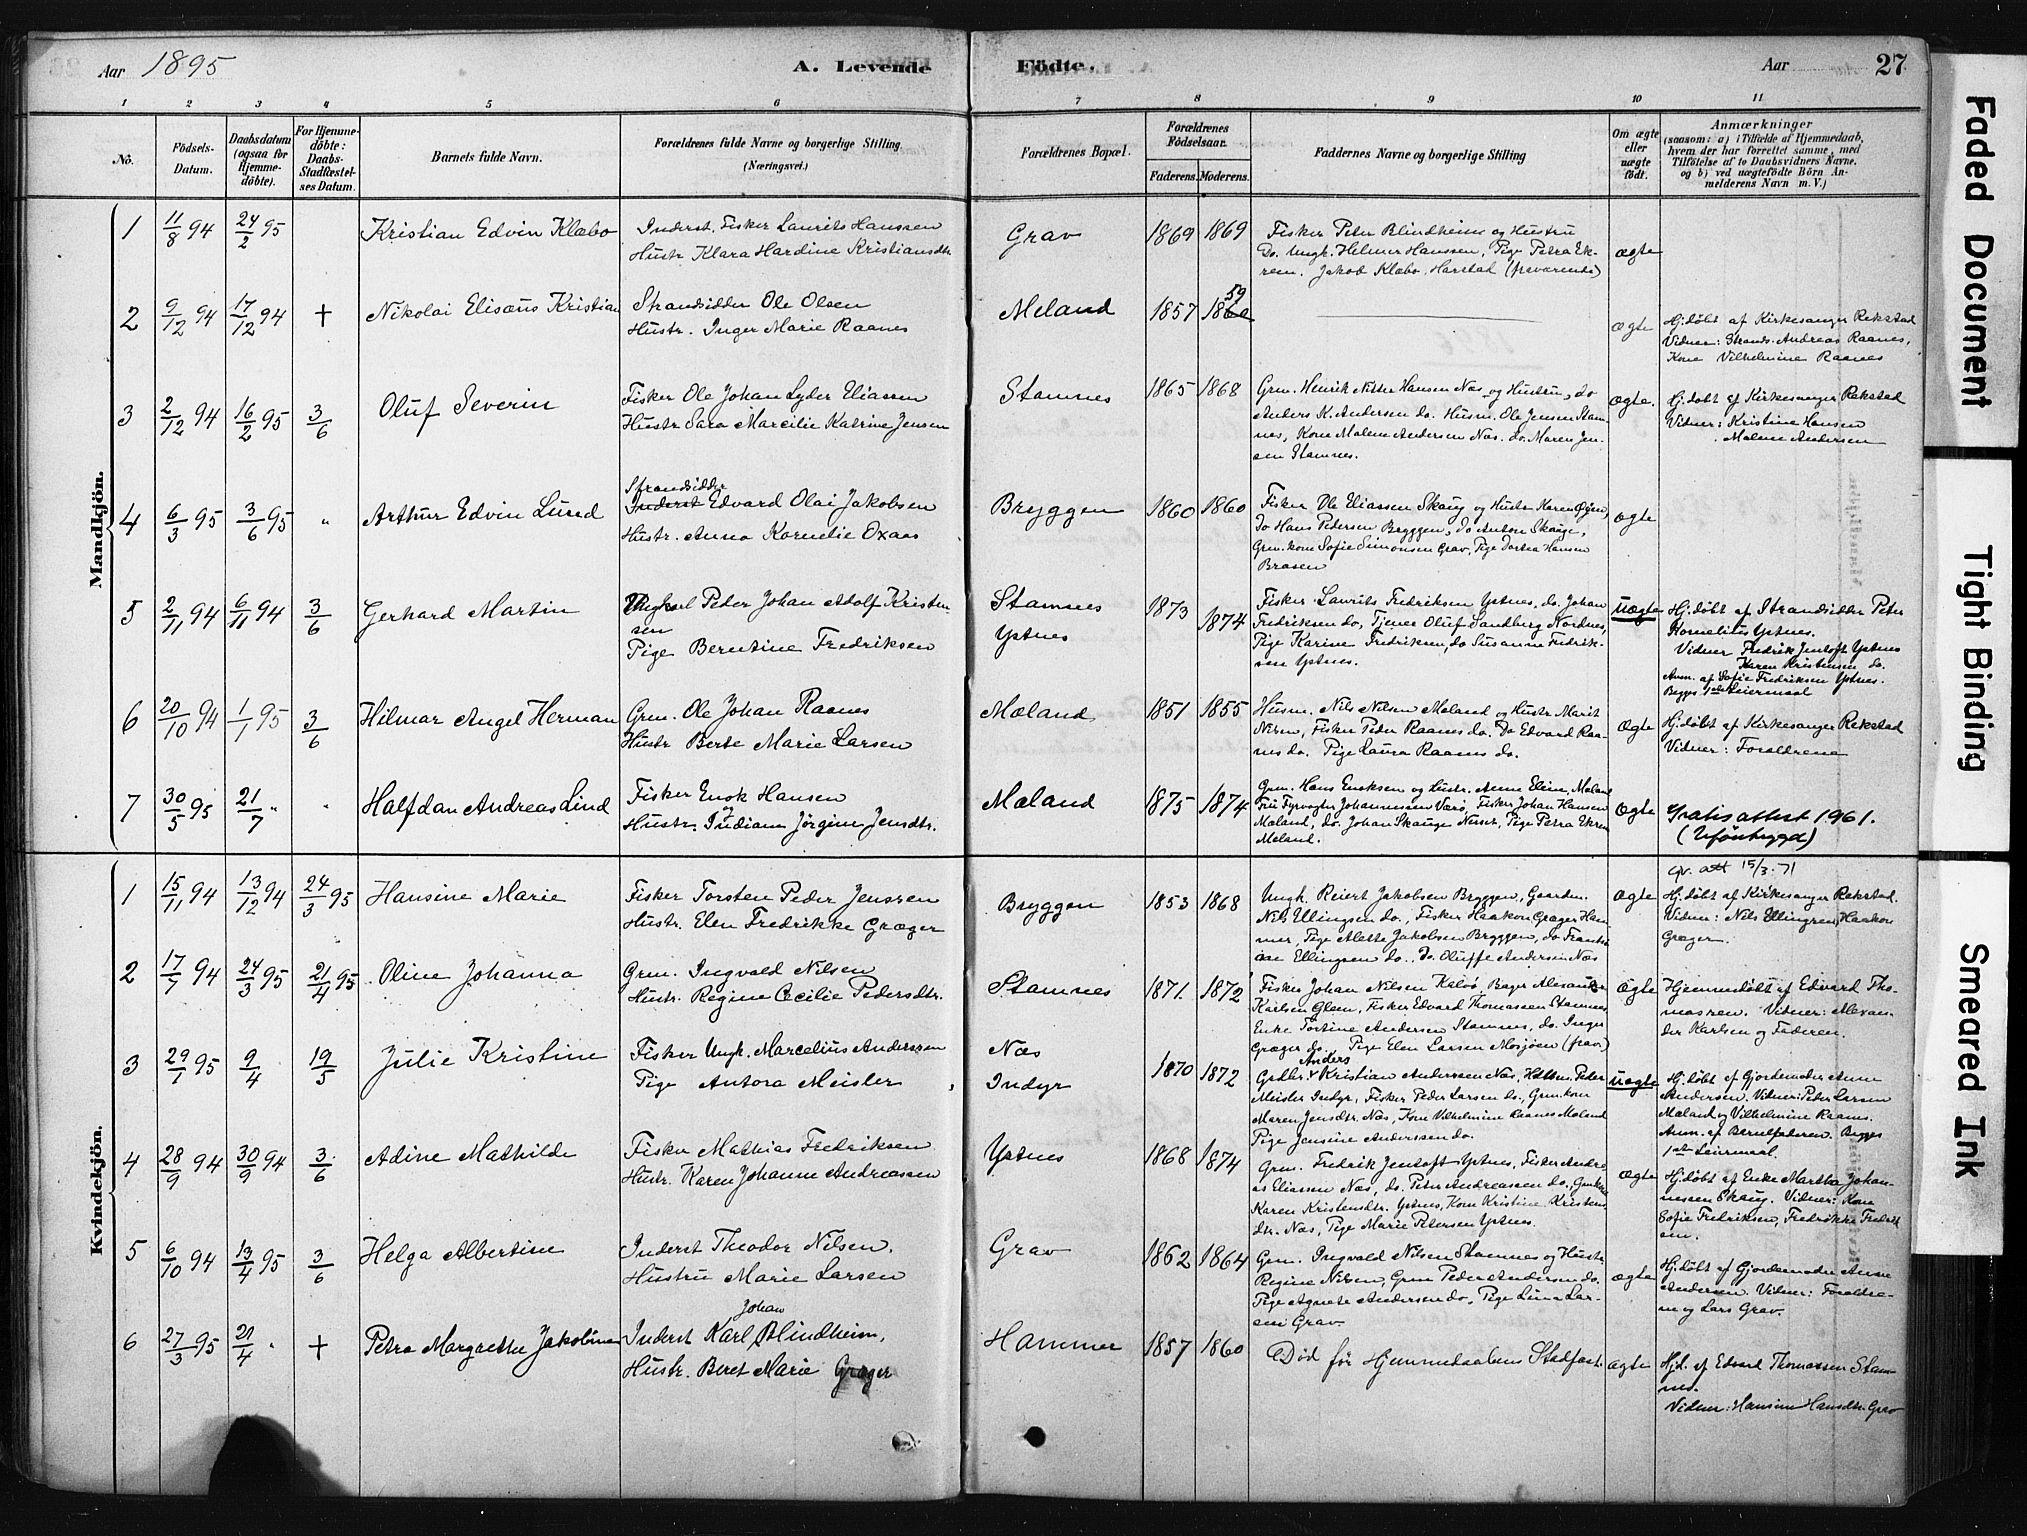 Aar 1895 A. Levende Födte. Aar 27
1 2 3 4 5 6 7 8 9 10 11
No. Födsels-Datum. Daabsdatum (ogsaa for Hjemme-döbte). For Hjemme-döbte: Daabs-Stadfæstelses Datum. Barnets fulde Navn. Forældrenes fulde Navne og borgerlige Stilling (Næringsvei.) Forældrenes Bopæl. Forældrenes Födselsaar. Faderens. Moderens. Faddernes Navne og borgerlige Stilling Om ægte eller uægte födt. Anmærkninger (saasom: a) i Tilfælde af Hjemmedaab, hvem der har forrettet samme, med Tilföielse af to Daabsvidners Navne, og b) ved uægtefödte Börn Anmelderens Navn m. V.)
Mandkjön.
1 11/8 94 24/2 95 Kristian Edvin Klæbo
Inderst. Fisker Laurits Hanssen
Hustr Klara Hardine Kristiansdtr
Grav 1869 1869
Fisker Peter Blindheim og Hustru
Do. Ungk. Helmer Hanssen, Pige Petra Ek-
rem. Jakob Klæbo, Harstad (fraværende)
ægte
2 9/12 94 17/12 94 + Nikolai Elisæus Kristian
Strandsidder Ole Olsen
Hustr. Inger Marie Raanes
Meland 1857 1859
ægte
Hj.döbt af Kirkesanger Rekstad
Vidner: Strands. Andreas Raanes,
Kone Vilhelmine Raanes
3 2/12 94 16/2 95 3/6 Oluf Severin
Fisker Ole Johan Lyder Eliassen
Hustr Sara Marcilie Katrine Jensen
Stamnes 1865 1868
Grm. Henrik Nitter Hansen Næs og Hustru, do
Anders K. Andersen do. Husm. Ole Jensen Stam-
nes, Kone Malene Andersen Næs. do. Maren Jen-
sen Stamnes.
ægte.
Hj.døbt af Kirkesanger Rekstad
Vidner: Kristine Hansen
Malene Andersen
4 6/3 95 3/6 95 " Arthur Edvin Lund
Strandsidder
Inderst Edvard Olai Jakobsen
Hustr. Anna Kornelie Oxaas
Bryggen 1860 1860
Fisker Ole Eliassen Skaug og Hustr Karen Øien,
do Hans Pedersen Bryggen, do Anton Skauge,
Grm.kone Sofie Simonsen Grav, Pige Dortea Hansen
Brasen
ægte
5 2/11 94 6/11 94 3/6 Gerhard Martin
Ungkarl Peder Johan Adolf Kristen-
sen
Pige Berntine Fredriksen
Stamnes
Ystnes
1873 1874
Fisker Laurits Fredriksen Ystnes, do. Johan
Fredriksen do, Tjener Oluf Sandberg Nordnes,
Pige Karine Fredriksen, do Susanna Fredrik-
sen Ystnes.
uægte
Hj.døbt af Strandsidder Peter
Kornelius Ystnes.
Vidner Fredrik Jentoft Ystnes
Karen Kristensen do.
Anm. af Sofie Fredriksen Ystnes.
Begges 1ste Leiermaal
6 20/10 94 1/1 95 3/6 Hilmar Angel Herman
Grm. Ole Johan Raanes
Hustr Berte Marie Larsen
Mæland 1851 1855
Husm. Nils Nilsen Meland og Hustr Marit
Nilsen, Fisker Peder Raanes do. Do Edvard Raa-
nes do. Pige Laura Raanes do.
ægte
Hj.døbt af Kirkesanger Rekstad
Vidner: Forældrene
7 30/5 95 21/7 " " Halfdan Andreas Lind
Fisker Enok Hansen
og
Hustr. Indiane Jörgine Jensdtr.
Mæland 1875 1874
Grm. Hans Enoksen og Hustr. Anne Elen, Meland
Fru Fyrvogter Johannessen Værø, Fisker Johan Hansen
Mæland, do. Johan Skauge Neset, Pige Petra Ekrem
Meland.
ægte
Gratis attest 1961.
(Uføretrygd)
Kvindekjön.
1 15/11 94 13/12 94 24/3 95 Hansine Marie
Fisker Torsten Peder Jenssen
Hustr. Elen Fredrikke Græger
Bryggen 1853 1868
Ungk. Reiert Jakobsen Bryggen, Gaardm.
Nils Ellingsen do., Fisker Haakon Græger Ham-
mer, Pige Alette Jakobsen Bryggen, do Frantsi-
ne Ellingsen do. Do. Oluffe Andersen Næs
ægte
gr. att 15/3-71
Hj.døbt af Kirkesanger Rekstad.
Vidner: Nils Ellingsen, Haakon
Græger.
2 17/7 94 24/3 95 21/4 95 Oline Johanna
Grm. Ingvald Nilsen
Hustr. Regine Cecilie Pedersdtr.
Stamnes 1871. 1872
Fisker Johan Nilsen Kalvø, Bager Alexander
Karlsen Gleen, Fisker Edvard Thomassen Stamnes
Enke Tortine Andersen Stamnes, do. Inger
Græger do. Pige Elen Larsen Mosjøen (frav.)
ægte
Hjemmedøbt af Edvard Tho-
massen. Vidner: Alexan-
der Karlsen og Faderen.
3 29/1 95 9/4 19/5 Julie Kristine
Fisker Ungk. Marcelius Anderssen
Pige Antora Meisler
Næs
Indyr
1870 1872
Anders
Gaardbr. Kristian Anderssen Næs, Peter
Meisler Indyr, Fisker Peder Larsen do., Grm.kone
Maren Jensdtr. Næs, Kone Vilhelmine Raanes Mæland
Pige Jensine Anderssen do.
uægte
Hj.døbt af Gjordemoder Anne
Andersen. Vidner: Peder Larsen
Mæland og Vilhelmine Raanes.
Anm. af Barnefaderen. Begges
1ste Leiermaal.
4 28/9 94 30/9 94 3/6 Adine Mathilde
Fisker Mathias Fredriksen
Hustr. Karen Johanne Andreassen
Ystnes 1868 1874
Grm. Fredrik Jentoft Ystnes, Fisker Andre-
as Eliassen Næs, do. Peter Andreassen do., Grmkone
Karen Kristensdtr. Ystnes, Kone Kristine Kristens-
dtr. Næs, Pige Marie Petersen Ystnes.
ægte
Hj.døbt af Enke Martha Johan-
nessen Skaug. Vidner: Kone
Sofie Fredriksen, Fredrikke Fredrik-
sen.
5 6/10 94 13/4 95 3/6 Helga Albertine
Inderst Theodor Nilsen.
Hustru Marie Larsen
Grav 1862 1864
Grm. Ingvald Nilsen Stamnes og Hustr.
Regine Nilsen, Grm Peder Andersen do.
Pige Agnete Andersen do, Pige Lina Lar-
sen Grav.
ægte
Hj.døbt af Gjordemoder Anne
Andersen. Vidner: Forældre-
ne og Lars Grav.
6 27/3 95 21/4 " + Petra Margrethe Jakobine
Johan
Inderst Karl Blindheim,
Hustr. Beret Marie Græger
Hammer 1857 1860
Død før Hjemmedaabens Stadfæst.
ægte
Hjd. af Edvard Thomassen Stam-
nes.
Vidner: Hansine Hansdtr. Grav
Faded Document
Tight Binding
Smeared Ink